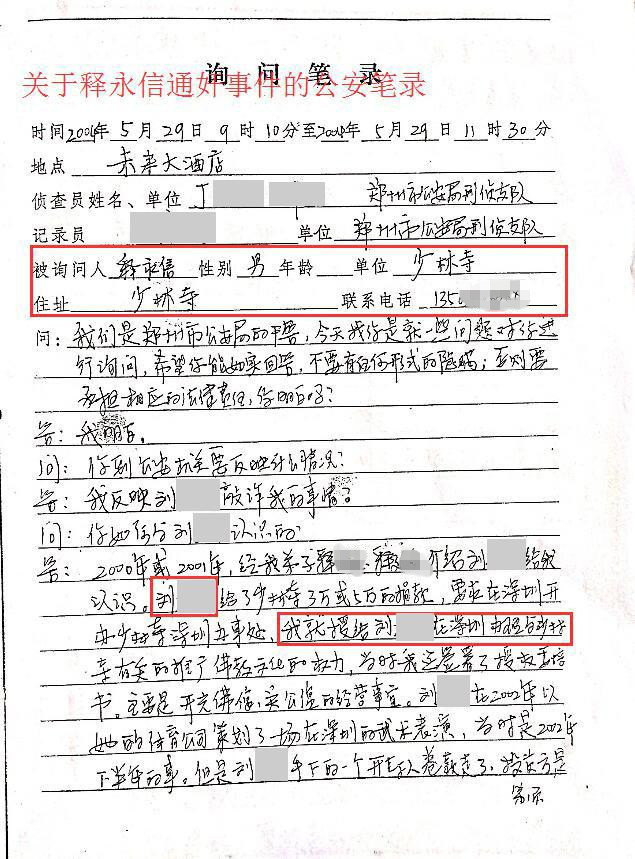 询问笔录
关于释永信通奸事件的公安笔录
时间2004年5月29日9时10分至2004年5月29日11时30分
地点 未来大酒店
侦查员姓名、单位 丁 郑州市公安局刑侦支队
记录员 单位 郑州市公安局刑侦支队
被询问人 释永信 性别 男 年龄 单位 少林寺
住址 少林寺 联系电话 1350
问：我们是郑州市公安局的干警，今天找你是就一些问题对你进
行询问，希望你能如实回答，不要有任何形式的隐瞒；否则要
承担相应的法律责任，你明白吗？
答：我明白。
问：你到公安机关要反映什么情况？
答：我反映刘 敲诈我的事情。
问：你如何与刘 认识的
答：2000年或2001年，经我弟子释 释 介绍刘 给我
认识。刘 给了少林寺3万或5万的捐款，要求在深圳开
办少林寺深圳办事处，我就授给刘 在深圳办理与少林
寺有关的推广佛教文化的权力，当时我还签署了授权委托
书。主要是开光佛像、卖 的经营事宜。刘 在2002年以
她的体育公司策划了一场在深圳的武术表演，当时是2002年
下半年的事。但是刘 手下的一个 卷款走了，投资方是